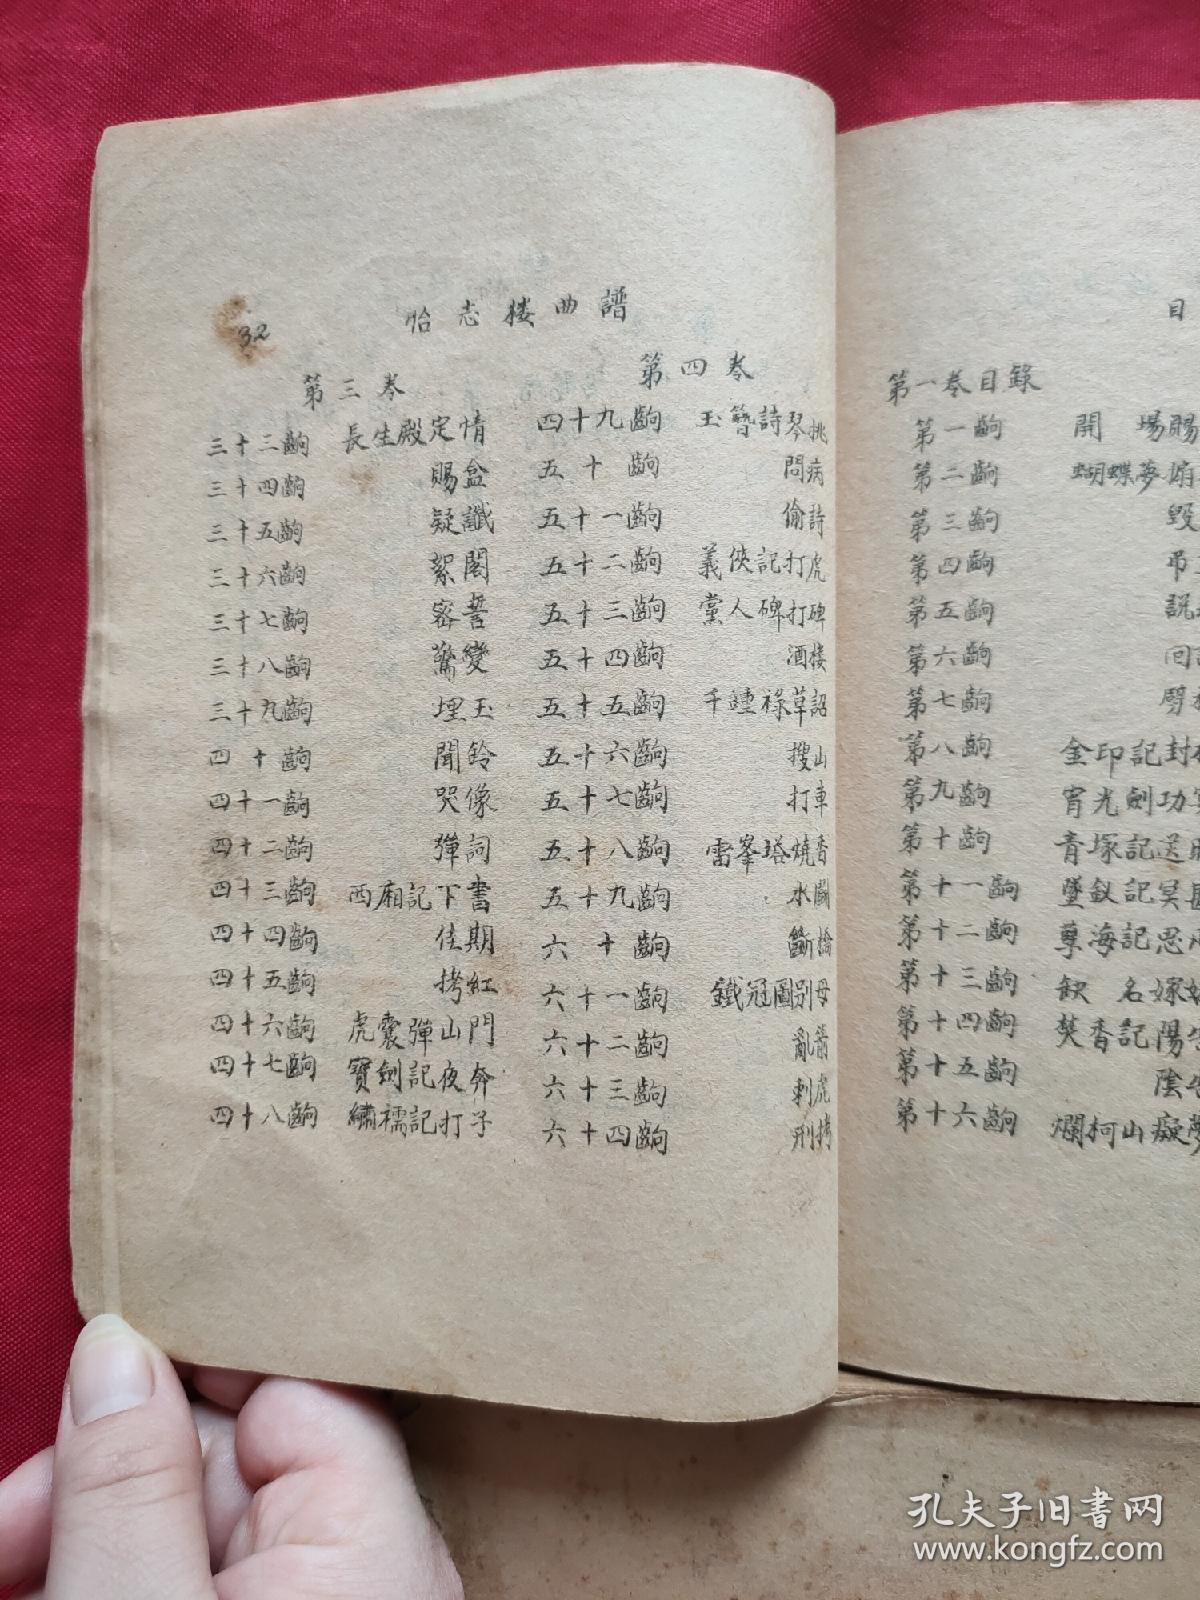 32 怡志楼曲譜
第三卷
三十二齣 長生殿定情
三十四齣 賜盆
三十五齣 疑讖
三十六齣 絮閣
三十七齣 密誓
三十八齣 驚變
三十九齣 埋玉
四十齣 聞鈴
四十一齣 哭像
四十二齣 彈詞
四十三齣 西廂記下書
四十四齣 佳期
四十五齣 拷紅
四十六齣 虎囊彈山門
四十七齣 寶劍記夜奔
四十八齣 繡襦記打子
第四卷
四十九齣 玉簪詩琴挑
五十齣 問病
五十一齣 偷詩
五十二齣 義俠記打虎
五十三齣 黨人碑打碑
五十四齣 酒楼
五十五齣 千鍾祿草詔
五十六齣 搜山
五十七齣 打車
五十八齣 雷峯塔燒香
五十九齣 水鬪
六十齣 斷橋
六十一齣 鐵冠圖別母
六十二齣 亂箭
六十三齣 刺虎
六十四齣 刑拷
目
第一卷目錄
第一齣 開場賜
第二齣 蝴蝶夢搧
第三齣 毀
第四齣 弔
第五齣 説
第六齣 回
第七齣 劈
第八齣 金印記封
第九齣 宵光劍功
第十齣 青塚記送
第十一齣 墜釵記冥
第十二齣 孽海記思
第十三齣 缺名嫁
第十四齣 焚香記陽
第十五齣 陰
第十六齣 爛柯山癡夢
孔夫子旧书网
www.kongfz.com